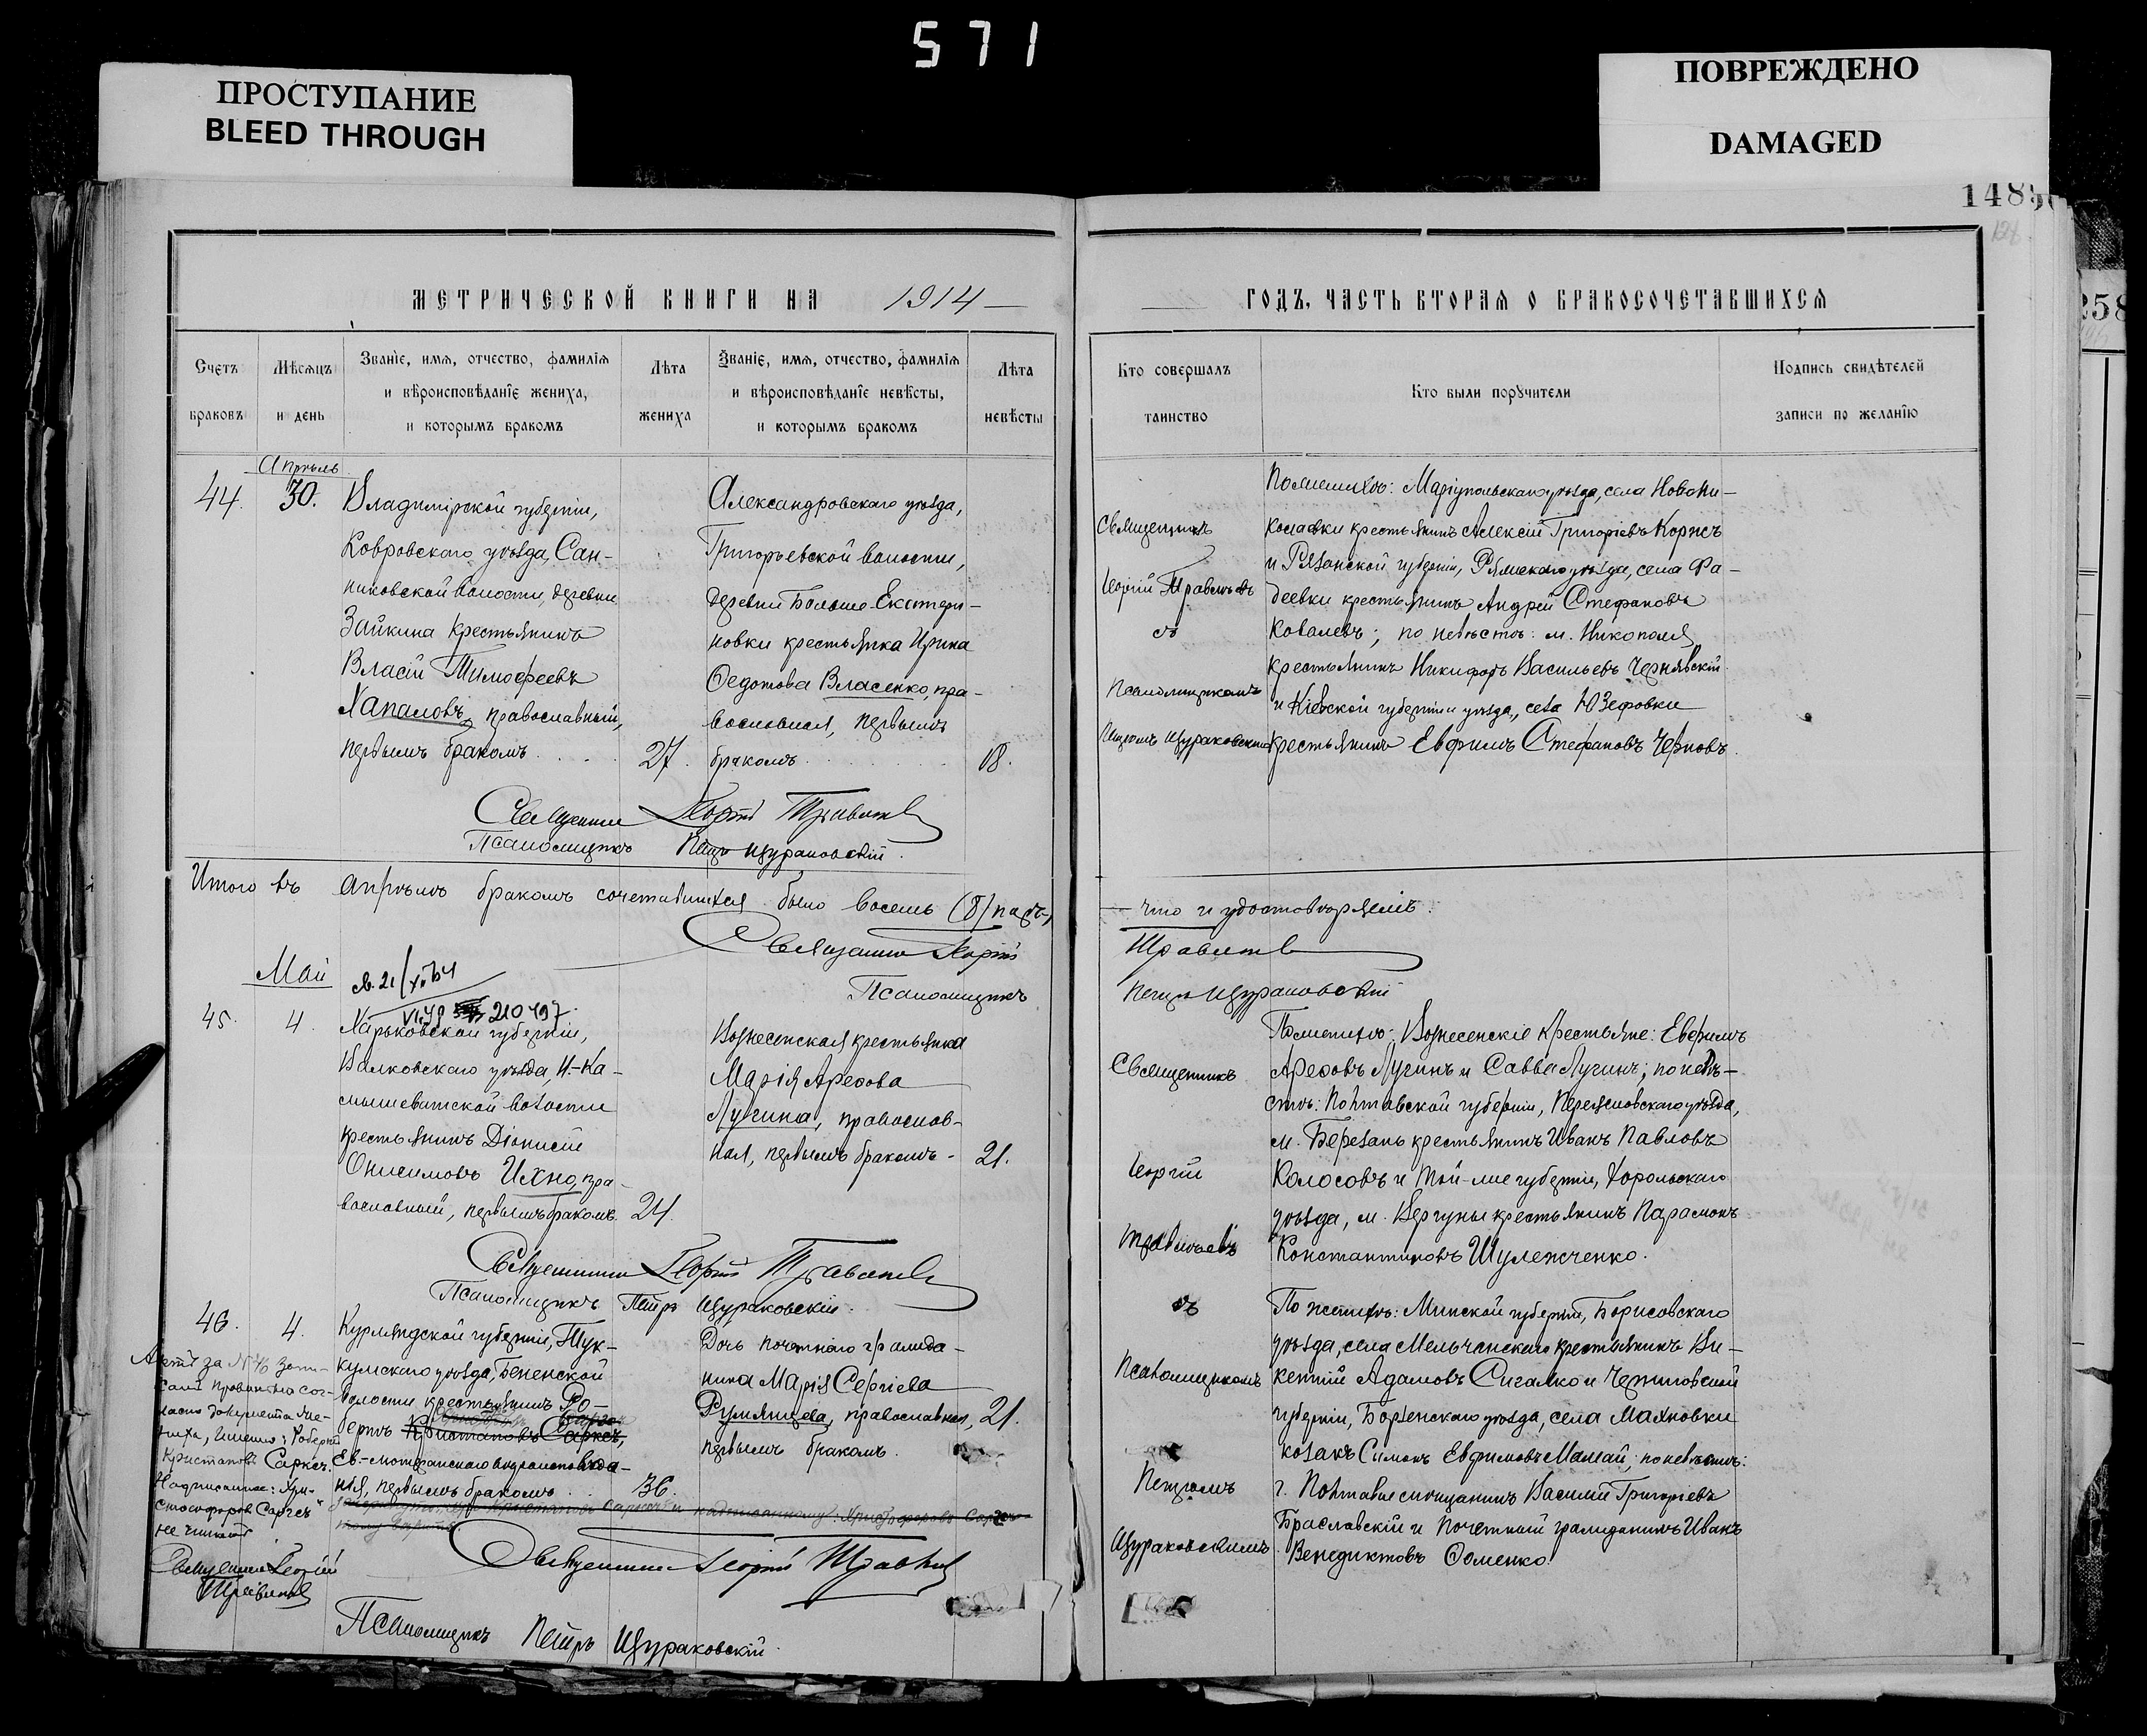 571
ПРОСТУПАНИЕ
BLEED THROUGH
ПОВРЕЖДЕНО
DAMAGED
148
258
МЕТРИЧЕСКОЙ КНИГИ НА 1914
ГОДЪ, ЧАСТЬ ВТОРАЯ О БРАКОСОЧЕТАВШИХСЯ
Счетъ браковъ
Мѣсяцъ и день
Званіе, имя, отчество, фамилія и вѣроисповѣданіе жениха, и которымъ бракомъ
Лѣта жениха
Званіе, имя, отчество, фамилія и вѣроисповѣданіе невѣсты, и которымъ бракомъ
Лѣта невѣсты
Кто совершалъ таинство
Кто были поручители
Подпись свидѣтелей записи по желанію
Апрѣль
44. 30.
Владимірской губерніи,
Ковровскаго уѣзда, Сан-
никовской волости, деревни
Зайкина крестьянинъ
Власій Тимофеевъ
Хапаловъ, православный,
первымъ бракомъ
27.
Александровскаго уѣзда,
Григорьевской волости,
деревни Больше-Екатери-
новки крестьянка Ирина
Ѳедотова Власенко, пра-
вославная, первымъ
бракомъ
18.
Священникъ Георгій
Псаломщикъ Петръ Щураковскій.
Священникъ
Георгій
съ
Псаломщикомъ
Петромъ Щураковскимъ
По женихѣ: Маріупольскаго уѣзда, села Новони-
колаевки крестьянинъ Алексій Григорьевъ Коржъ
и Рязанской губерніи, уѣзда, села Фа-
деевки крестьянинъ Андрей Стефановъ
Ковалевъ; по невѣстѣ: м. Никополя
крестьянинъ Никифоръ Васильевъ Чернявскій
и Кіевской губерніи и уѣзда, села Юзефовки
крестьянинъ Евфимъ Стефановъ Черновъ.
Итого въ Апрѣлѣ бракомъ сочетавшихся было восемь (8) паръ,
что и удостовѣряемъ:
Священникъ Георгій
Псаломщикъ
Петръ Щураковскій
Май
210497
45. 4.
Харьковской губерніи,
Валковскаго уѣзда, Н.-Ка-
волости
крестьянинъ Діонисій
Онисимовъ Ихно, пра-
вославный, первымъ бракомъ.
24.
Вознесенская крестьянка
Марія Ареѳова
Лучина, православ-
ная, первымъ бракомъ -
21.
Священникъ Георгій
Псаломщикъ Петръ Щураковскій.
Священникъ
Георгій
По женихѣ: Вознесенскіе крестьяне: Евфимъ
Ареѳовъ Лучинъ и Савва Лучинъ; по невѣ-
стѣ: Полтавской губерніи, Переяславскаго уѣзда,
м. Березань крестьянинъ Иванъ Павловъ
Колосовъ и той-же губерніи, Хорольскаго
уѣзда, м. крестьянинъ Парамонъ
Константиновъ Шулежченко.
46. 4.
Курляндской губерніи, Тук-
кумскаго уѣзда,
волости крестьянинъ Ро-
бертъ Кристаповъ Сарксъ,
Ев.-лютеранскаго вѣроисповѣда-
нія, первымъ бракомъ
36.
Дочь почетнаго гражда-
нина Марія Сергіева
Румянцева, православная,
первымъ бракомъ.
21.
Актъ за № 46 запи-
санъ правильно сог-
ласно документа же-
ниха, именно: Робертъ
Кристаповъ Сарксъ.
Надписанное: Хри-
стофоровъ
не читать
Священникъ Георгій
Священникъ Георгій
Псаломщикъ Петръ Щураковскій.
съ
Псаломщикомъ
Петромъ
Щураковскимъ.
По женихѣ: Минской губерніи, Борисовскаго
уѣзда, села крестьянинъ Ви-
кентій Адамовъ Сигалко и Черниговской
губерніи, Борзенскаго уѣзда, села
козакъ Симонъ Евфимовъ Мамай; по невѣстѣ:
г. Полтавы мѣщанинъ Василій Григорьевъ
Браславскій и почетный гражданинъ Иванъ
Венедиктовъ Ѳоменко.